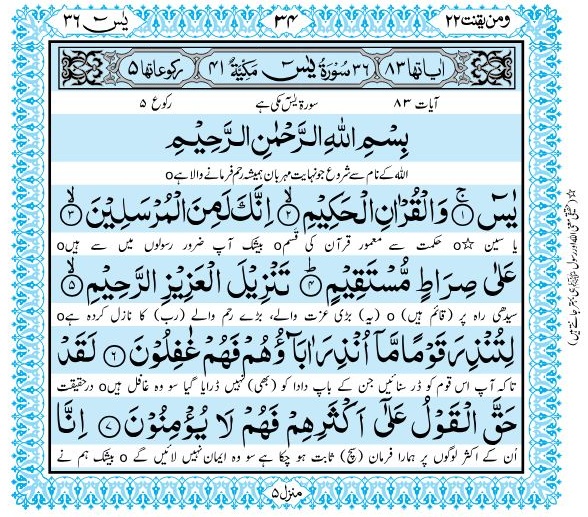 ومن یقنت ۲۲ ۳۴ یٰسٓ ۳۶
اٰیاتھا ۸۳ ۳۶ سُوْرَةُ یٰسٓ مَکِّیَّةٌ ۴۱ رکوعاتھا ۵
آیات ۸۳ سورۃ یٰسٓ مکی ہے رکوع ۵
بِسْمِ اللّٰهِ الرَّحْمٰنِ الرَّحِیْمِ
اللہ کے نام سے شروع جو نہایت مہربان ہمیشہ رحم فرمانے والا ہے o
یٰسٓ ۚ﴿۱﴾ وَالْقُرْاٰنِ الْحَكِیْمِ ۙ﴿۲﴾ اِنَّكَ لَمِنَ الْمُرْسَلِیْنَ ۙ﴿۳﴾
یا سین ☆ o حکمت سے معمور قرآن کی قسم o بیشک آپ ضرور رسولوں میں سے ہیں o
عَلٰی صِرَاطٍ مُّسْتَقِیْمٍ ؕ﴿۴﴾ تَنْزِیْلَ الْعَزِیْزِ الرَّحِیْمِ ۙ﴿۵﴾
سیدھی راہ پر (قائم ہیں) o (یہ) بڑی عزت والے، بڑے رحم والے (رب) کا نازل کردہ ہے o
لِتُنْذِرَ قَوْمًا مَّاۤ اُنْذِرَ اٰبَآؤُهُمْ فَهُمْ غٰفِلُوْنَ ﴿۶﴾ لَقَدْ
تاکہ آپ اس قوم کو ڈر سنائیں جن کے باپ دادا کو (بھی) نہیں ڈرایا گیا سو وہ غافل ہیں o درحقیقت
حَقَّ الْقَوْلُ عَلٰۤی اَكْثَرِهِمْ فَهُمْ لَا یُؤْمِنُوْنَ ﴿۷﴾ اِنَّا
اُن کے اکثر لوگوں پر ہمارا فرمان (سچ) ثابت ہو چکا ہے سو وہ ایمان نہیں لائیں گے o بیشک ہم نے
منزل ۵
☆ (حقیقی معنی اللہ اور رسول ﷺ ہی بہتر جانتے ہیں)